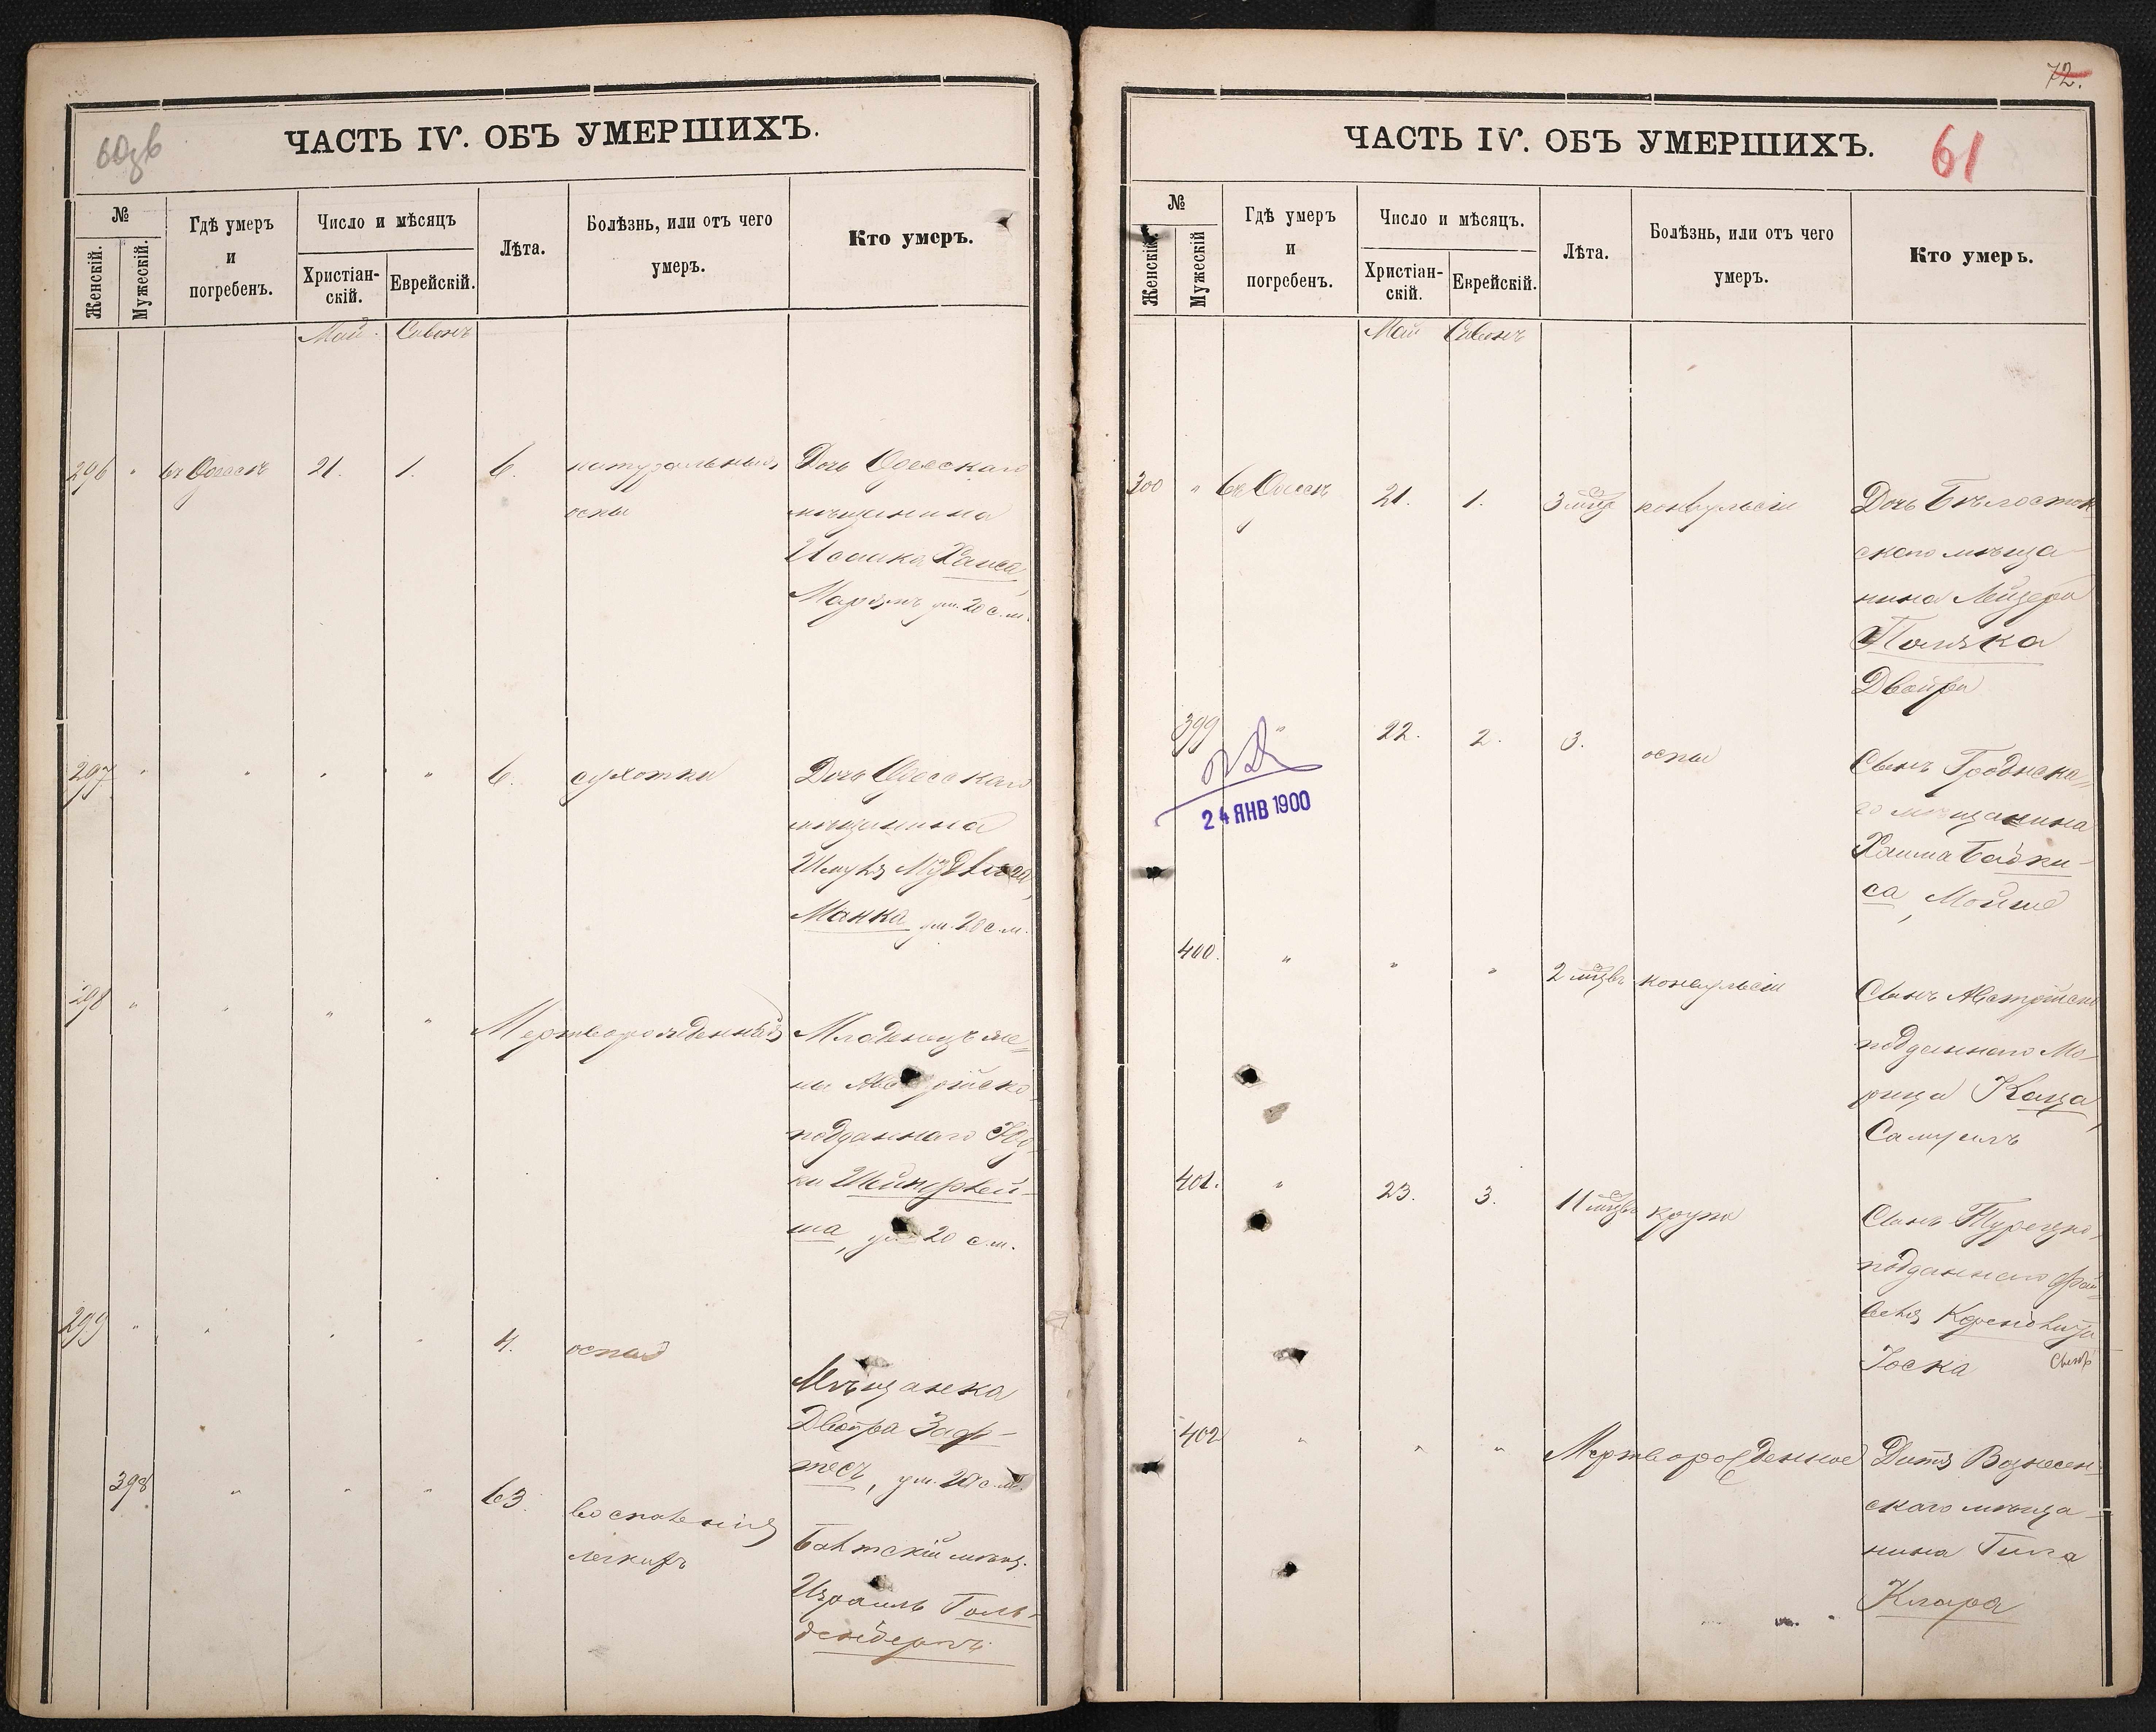 60зв
ЧАСТЬ IV. ОБЪ УМЕРШИХЪ.
№
Женскій.
Мужескій.
Гдѣ умеръ
и
погребенъ.
Число и мѣсяцъ
Христіан-
скій.
Еврейскій.
Лѣта.
Болѣзнь, или отъ чего
умеръ.
Кто умеръ.
Май. Сивонъ
296 " въ Одессѣ 21. 1. 6. натуральныя Дочь Одесскаго
оспы мѣщанина
Исаака Хаиса,
Марьямъ ум. 20 с.м.
297 " " " " 6. сухотки Дочь Одесскаго
мѣщанина
Шмуля
Манка ум. 20 с.м.
298 " " " " Мертворожденный Младенецъ же-
ны Австрійско-
подданнаго Юд-
ки
ша, ум. 20 с.м.
299 " " " " 4. оспы
Мѣщанка
Двойра Заф-
тесъ, ум. 20 с.м.
398 " " " 63. воспаленія
легкихъ
Балтскій мѣщ.
Израиль Голь-
денбергъ
72.
ЧАСТЬ IV. ОБЪ УМЕРШИХЪ.
61
№
Женскій.
Мужескій
Гдѣ умеръ
и
погребенъ.
Число и мѣсяцъ.
Христіан-
скій.
Еврейскій.
Лѣта.
Болѣзнь, или отъ чего
умеръ.
Кто умеръ.
Май Сивонъ
300 " въ Одессѣ 21. 1. 3 мѣс конвульсіи Дочь Бѣлосток-
скаго мѣща-
нина Лейзера
Поляка
Двойра
399 " 22. 2. 3. оспы Сынъ Гроднска-
го мѣщанина
Хаима Бадки-
са, Мойше
24 ЯНВ 1900
400. " " " 2 мѣсцъ конвульсіи Сынъ Австрійско
подданнаго Мо-
рица Каца,
Самуилъ
401. " 23. 3. 11 мѣсцъ крупа Сынъ Турецко-
подданнаго Фай-
веля
Іоска
402 " " " Мертворожденное Дитя Вознесен-
скаго мѣща-
нина
Клара